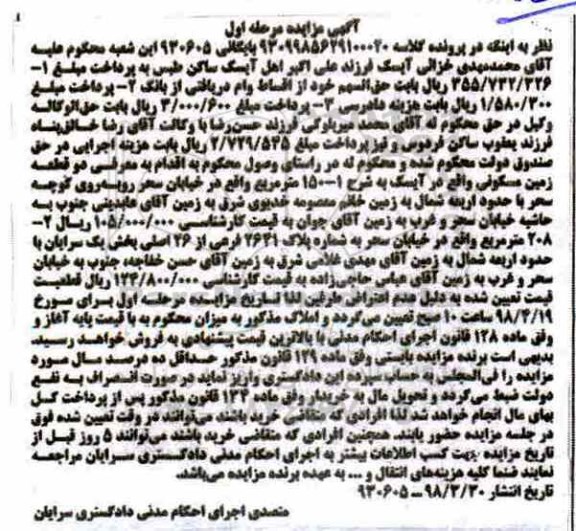 آگهی مزایده مرحله اول
نظر به اینکه در پرونده کلاسه ۹۳۰۹۹۸۵۶۲۹۱۰۰۰۲۰ بایگانی ۹۳۰۶۰۵ این شعبه محکوم علیه
آقای محمدمهدی خزائی آیسک فرزند علی اکبر اهل آیسک ساکن طبس به پرداخت مبلغ ۱-
۳۵۵/۷۳۲/۳۲۶ ریال بابت حق‌السهم خود از اقساط وام دریافتی از بانک ۲- پرداخت مبلغ
۱/۵۸۰/۲۰۰ ریال بابت هزینه دادرسی ۳- پرداخت مبلغ ۳/۰۰۰/۶۰۰ ریال بابت حق‌الوکاله
وکیل در حق محکوم له آقای محمد میربلوکی فرزند حسن‌رضا با وکالت آقای رضا خالق‌پناه
فرزند یعقوب ساکن فردوس و نیز پرداخت مبلغ ۲/۷۲۹/۵۴۵ ریال بابت هزینه اجرایی در حق
صندوق دولت محکوم شده و محکوم له در راستای وصول محکوم به اقدام به معرفی دو قطعه
زمین مسکونی واقع در آیسک به شرح ۱-۱۵۰ مترمربع واقع در خیابان سحر روبه‌روی کوچه
سحر با حدود اربعه شمال به زمین خانم معصومه خدیوی شرق به زمین آقای عابدینی جنوب به
حاشیه خیابان سحر و غرب به زمین آقای جوان به قیمت کارشناسی ۱۰۵/۰۰۰/۰۰۰ ریال ۲-
۲۰۸ مترمربع واقع در خیابان سحر به شماره پلاک ۲۶۳۱ فرعی از ۲۶ اصلی بخش یک سرایان با
حدود اربعه شمال به زمین آقای مهدی غلامی شرق به زمین آقای حسن خفاجه، جنوب به خیابان
سحر و غرب به زمین آقای عباس حاجی‌زاده به قیمت کارشناسی ۱۲۴/۸۰۰/۰۰۰ ریال قطعیت
قیمت تعیین شده به دلیل عدم اعتراض طرفین لذا تاریخ مزایده مرحله اول برای مورخ
۹۸/۴/۱۹ ساعت ۱۰ صبح تعیین می‌گردد و املاک مذکور به میزان محکوم به با قیمت پایه آغاز و
وفق ماده ۱۲۸ قانون اجرای احکام مدنی با بالاترین قیمت پیشنهادی به فروش خواهد رسید.
بدیهی است برنده مزایده بایستی وفق ماده ۱۲۹ قانون مذکور حداقل ده درصد مال مورد
مزایده را فی‌المجلس به حساب سپرده این دادگستری واریز نماید در صورت انصراف به نفع
دولت ضبط می‌گردد و تحویل مال به خریدار وفق ماده ۱۳۴ قانون مذکور پس از پرداخت کل
بهای مال انجام خواهد شد لذا افرادی که متقاضی خرید باشند می‌توانند در وقت تعیین شده فوق
در جلسه مزایده حضور یابند. همچنین افرادی که متقاضی خرید باشند می‌توانند ۵ روز قبل از
تاریخ مزایده جهت کسب اطلاعات بیشتر به اجرای احکام مدنی دادگستری سرایان مراجعه
نمایند ضمنا کلیه هزینه‌های انتقال و ... به عهده برنده مزایده می‌باشد.
تاریخ انتشار ۹۸/۳/۳۰ ــ ۹۳۰۶۰۵
متصدی اجرای احکام مدنی دادگستری سرایان